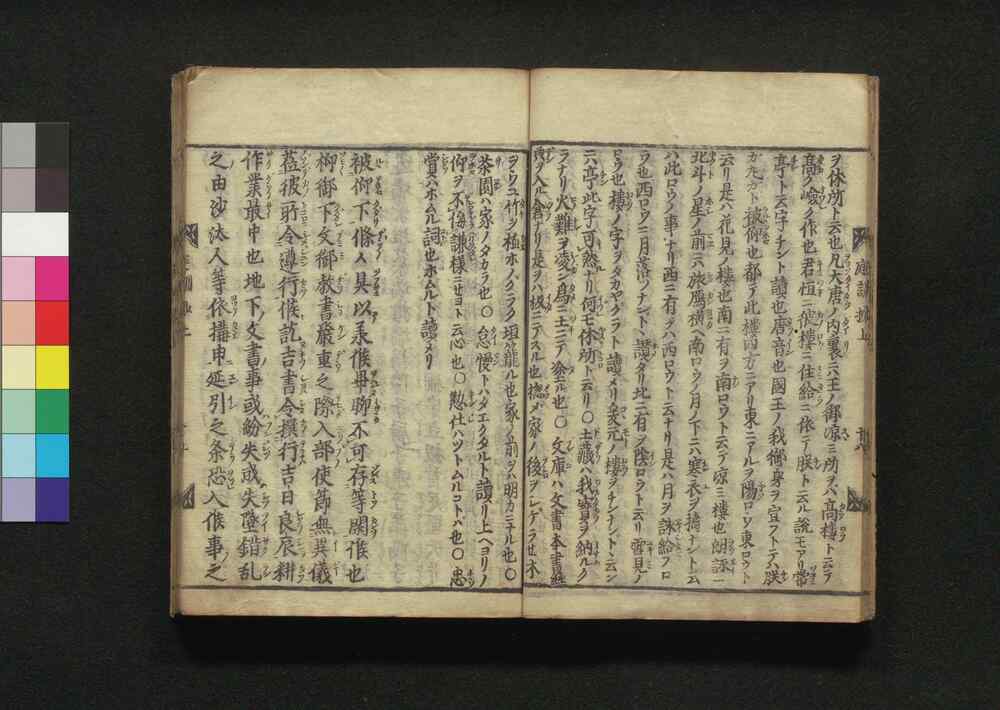 ヲ休所ト云也凡大唐ノ内裏ニハ王ノ御凉ニ所ヲバ高樓ト云テ
高ク嶮ク作也君恒ニ彼樓ニ住給ニ依テ朕ト云ル說モアリ常
亭ト云字チント讀也唐音也國王ノ我御身ヲ宣フトテハ朕
ガ カト被仰也都テ此樓四方ニアリ東ニアルヲ陽ロウ東ロウト
云リ是ハ花見ノ樓也南ニ有ヲ南ロウト云テ凉ニ樓也朗詠ニ
北斗ノ星ノ前ニハ旅鴈横南ロウノ月ノ下ニハ寒衣ヲ擣ナントム
ハ此ロウノ事ナリ西ニ有ヲハ西ロウト云ナリ是ハ月ヲ詠給フロ
ウ也西ロウニ月落ノナントヘ讀タリ北ニ有ヲ陰ロラト云リ雪見ノ
ロウ也樓ノ字ヲタカヤグラト讀メリ 元ノ樓ヲチンナントト云ン
ニハ亭此字可然ナリ何モ休所ト云リ〇土藏ハ我寶ヲ納ルク
ラナリ火難ヲ凌シ爲ニ土ニテ塗ル也〇文庫ハ文書本書經
ヲ入ル倉ナリ是ヲハ板ニテスル也 家ノ後ヲシゲラせ木
ヲウユ竹ヲ植ホノクラク垣籠ル也家ノ前ヲハ明カニナル也〇
茶園ハ家ノタカラ也〇怠慢トハダエクダルト讀リ上ヘヨリノ
仰ヲ不侮謙樣ニせヨト云心也〇懃仕ハツトムルコトハ也〇忠
賞ハホムル詞也ホムルト讀メリ
被仰下條々具以承候畢聊不可存等閑候也
抑御下文御敎書嚴重之際入部使節無異儀
莅彼所令遵行候訖吉書令撰行吉日良辰耕
作業最中也地下文書事或紛失或失墜錯乱
之由沙汰人等依搆申延引之条恐入候事之